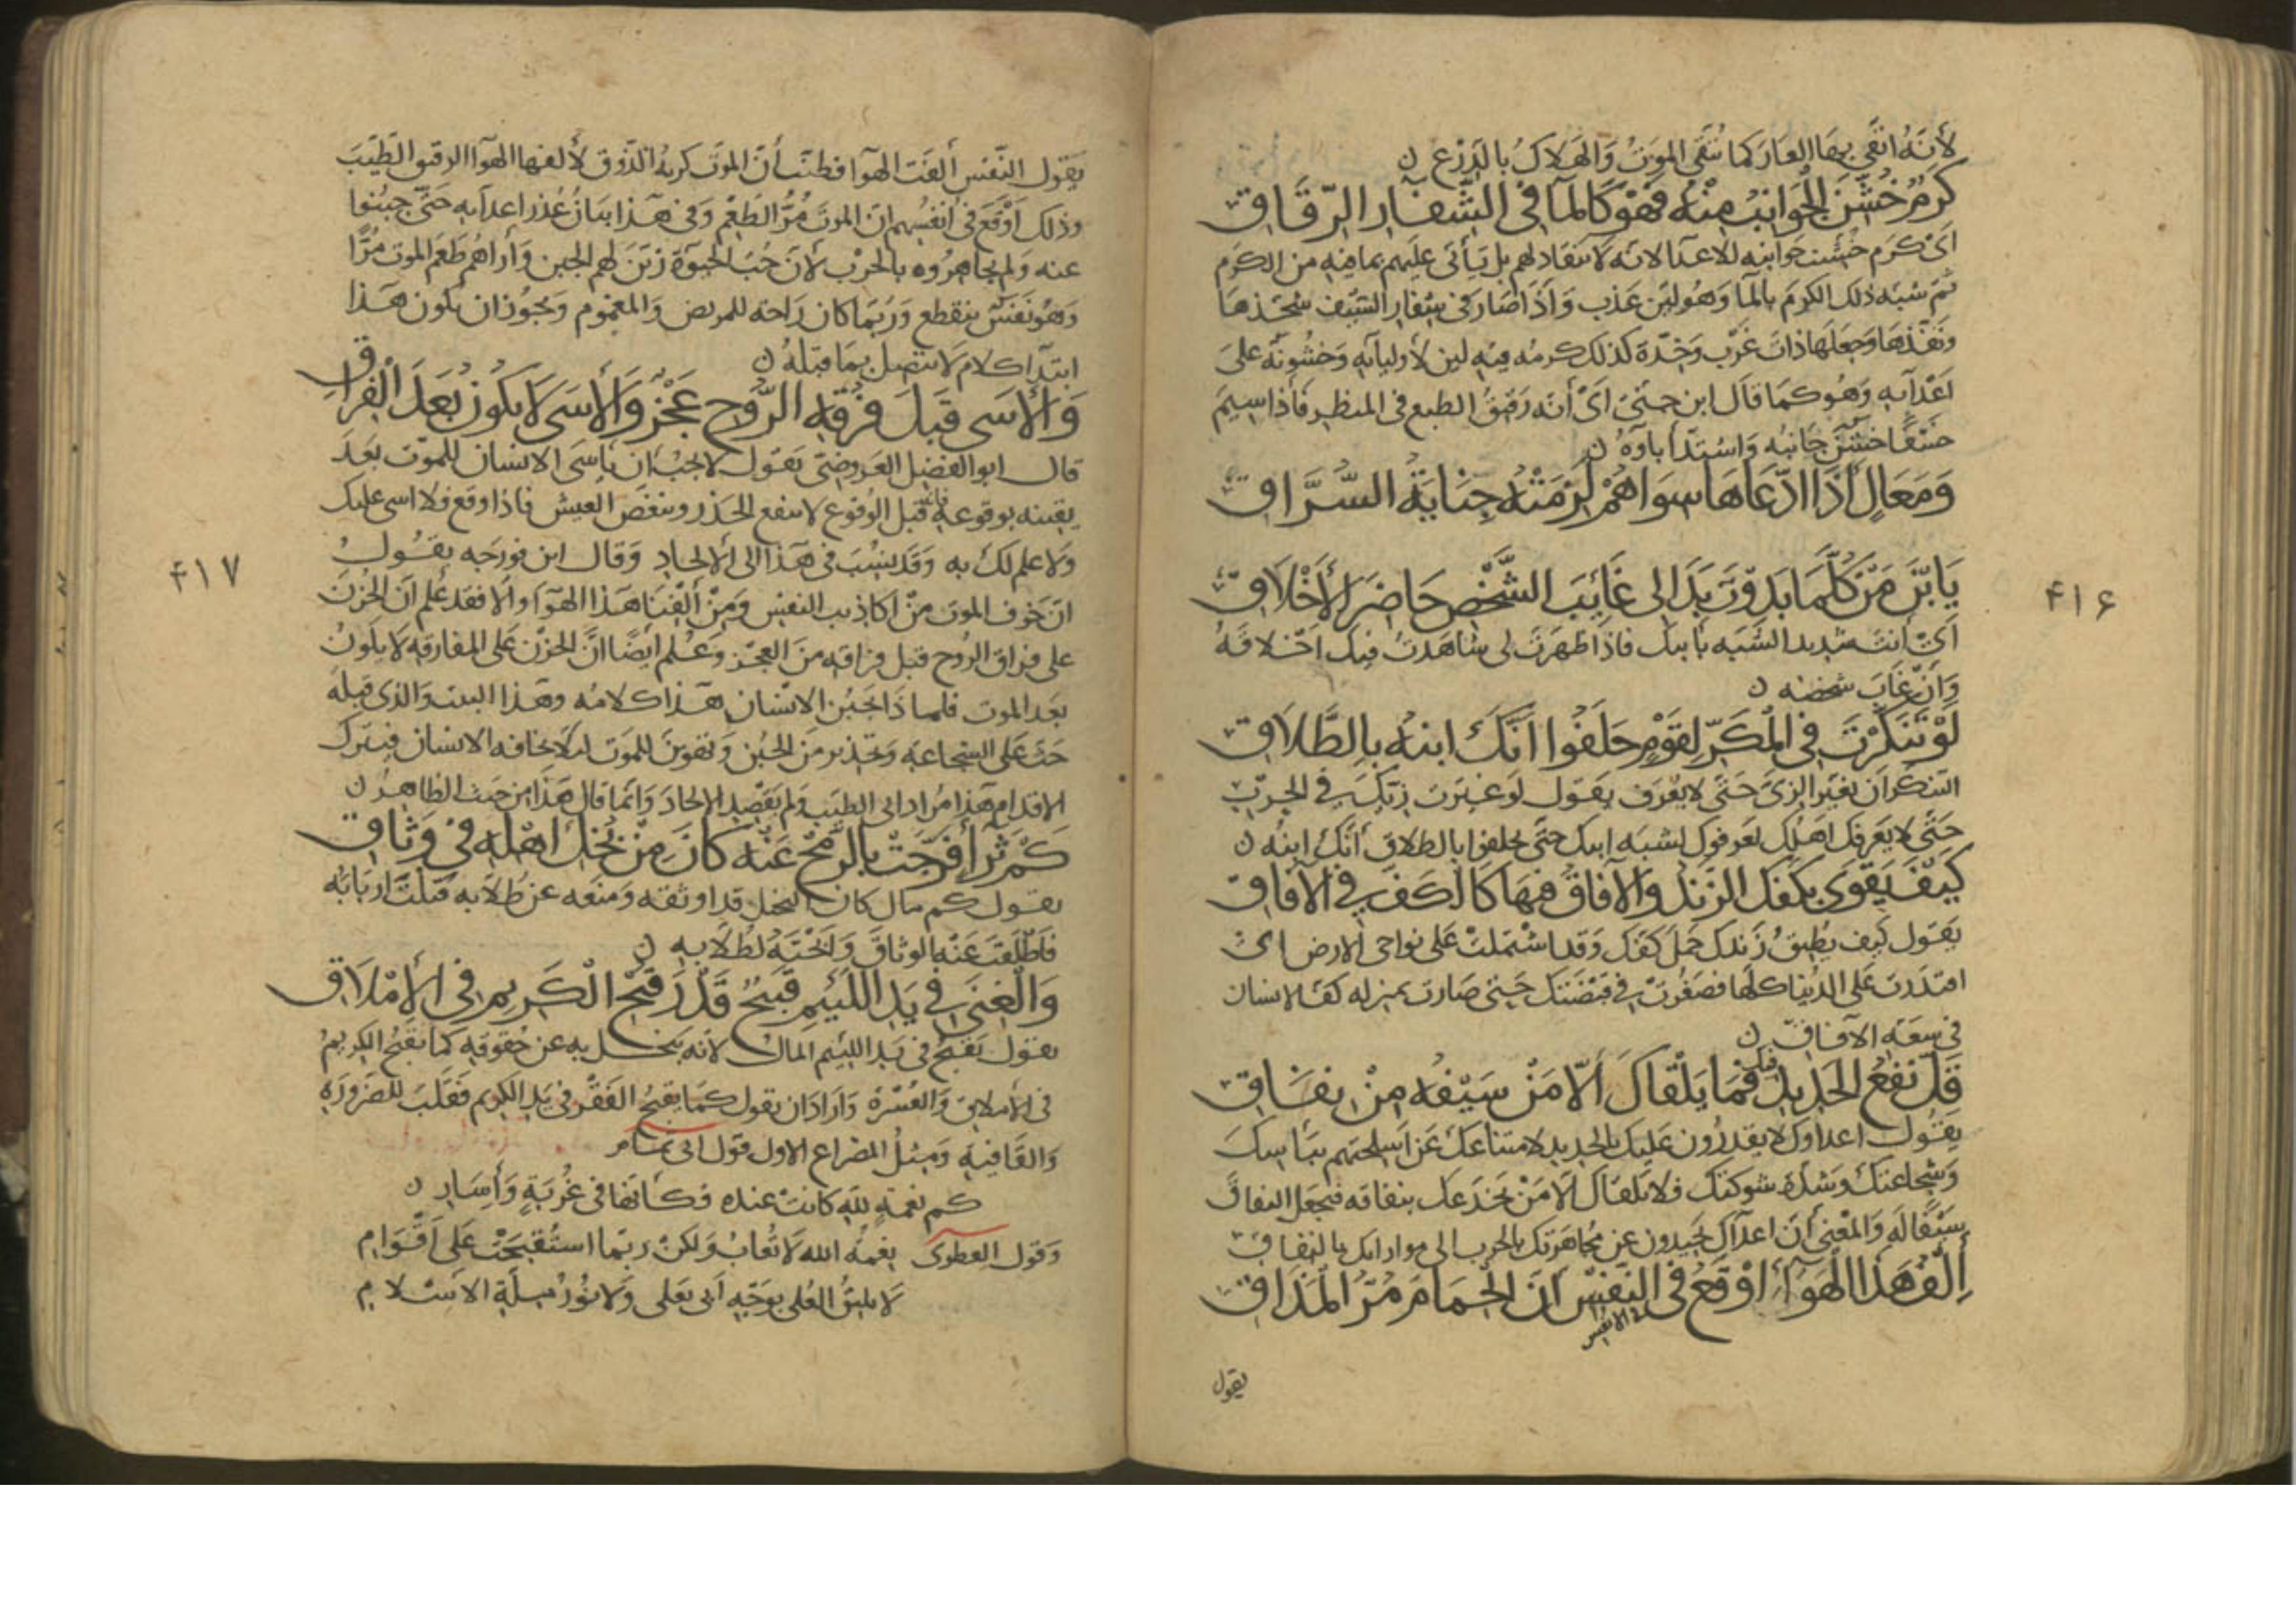 لأنه اتقى بها العار كما يتقى الموت والهلاك بالدرع ن
كرم خشن الجوانب منه فهو كالمآ فى الشفار الرقاق
اى كرم خشنت جوانبه للاعدآ لانه لا ينقاد لهم بل يتأتى عليهم بما فيه من الكرم
ثم شبه ذلك الكرم بالمآ وهو لين عذب واذا صار فى شفار السيف شحذها
ونفذها وجعلها ذات غرب وحدة كذلك كرمه فيه لين لأوليآيه وخشونة على
اعدآيه وهو كما قال ابن جنى اى أنه رقيق الطبع فى المنظر فأذا سيم
خسفا خشن جانبه واشتد اباوه ن
ومعال أذا ادعاها سواهم لزمته جناية السراق
يا بن من كلما بدوت بدا لى غايب الشخص حاضر الأخلاق
اى أنت شديد الشبه بابيك فاذا ظهرت لى شاهدت فيك اخلاقه
وان غاب شخصه ن
لو تنكرت فى المكر لقوم حلفوا أنك ابنه بالطلاق
التنكر ان يغير الزى حتى لا يعرف يقول لو غيرت زيك فى الحرب
حتى لا يعرفك اهلك لعرفوك لشبه ابيك حتى يحلفوا بالطلاق أنك ابنه ن
كيف يقوى بكفك الزند والآفاق فيها كالكف فى الآفاق
يقول كيف يطيق زندك حمل كفك وقد اشتملت على نواحى الارض اى
اقتدرت على الدنيا كلها فصغرت فى قبضتك حتى صارت بمنزلة كف الانسان
فى سعة الآفاق ن
قل نفع الحديد فيك فما يلقاك ألا من سيفه من نفاق
يقول اعداوك لا يقدرون عليك بالحديد لامتناعك عن اسلحتهم بباسك
وشجاعتك وشدة شوكتك فلا يلقاك الا من يخدعك بنفاقه فيجعل النفاق
سيفا له والمعنى أن اعدآك يحيدون عن مجاهرتك بالحرب الى مواراتك بالنفاق
إلف هذا الهوآء اوقع فى النفس أن الحمام مر المذاق
الانفس
يقول
۴۱۶
يقول النفس ألفت الهوآ فظنت أن الموت كريه الذوق لألفها الهوآ الرقيق الطيب
وذلك أوقع فى أنفسهم ان الموت مر الطعم وفى هذا بيان عذر اعدآيه حتى جبنوا
عنه ولم يجاهروه بالحرب لأن حب الحيوة زين لهم الجبن وأراهم طعم الموت مرا
وهو نفس ينقطع وربما كان راحة للمريض والمغموم ويجوز ان يكون هذا
ابتدآ كلام لا يتصل بما قبله ن
والأسى قبل فرقة الروح عجز والأسى لا يكون بعد الفراق
قال ابو الفضل العروضى يقول لا يجب ان ياسى الانسان للموت بعد
يقينه بوقوعه فانه قبل الوقوع لا ينفع الحذر وينغص العيش فاذا وقع فلا اسى عليك
ولا علم لك به وقد ينسب فى هذا الى الالحاد وقال ابن فورجه يقول
ان خوف الموت من اكاذيب النفس ومن ألفنا هذا الهوآ والا فقد علم أن الحزن
على فراق الروح قبل فراقه من العجز وعلم ايضا ان الحزن على المفارقه لا يكون
بعد الموت فلما ذا يجبن الانسان هذا كلامه وهذا البيت والذى قبله
حث على الشجاعة وتحذير من الجبن وتهوين للموت ليلا يخافه الانسان فيترك
الاقدام هذا مراد ابى الطيب ولم يقصد الالحاد وانما قال هذا من حيث الظاهر ن
كم ثرآ فرجت بالرمح عنه كان من بخل اهله فى وثاق
يقول كم مال كان البخل قد اوثقه ومنعه عن طلابه قتلت اربابه
فاطلقت عنه الوثاق وابحته لطلابه ن
والغنى فى يد اللئيم قبيح قدر قبح الكريم فى الأملاق
يقول يقبح فى يد اللئيم المال لأنه يبخل به عن حقوقه كما يقبح الكريم
فى الأملاق والعسرة وأراد ان يقول كما يقبح الفقر فى يد الكريم فقلب للضرورة
والقافية ومثل المصراع الاول قول ابى تمام
كم نعمة لله كانت عنده فكأنها فى غربة وأسار ن
وقول العطوى نعمة الله لا تعاب ولكن ربما استقبحت على اقوام
لا يليق الغنى بوجه أبى يعلى ولا نور بهجة الاسلام
۴۱۷